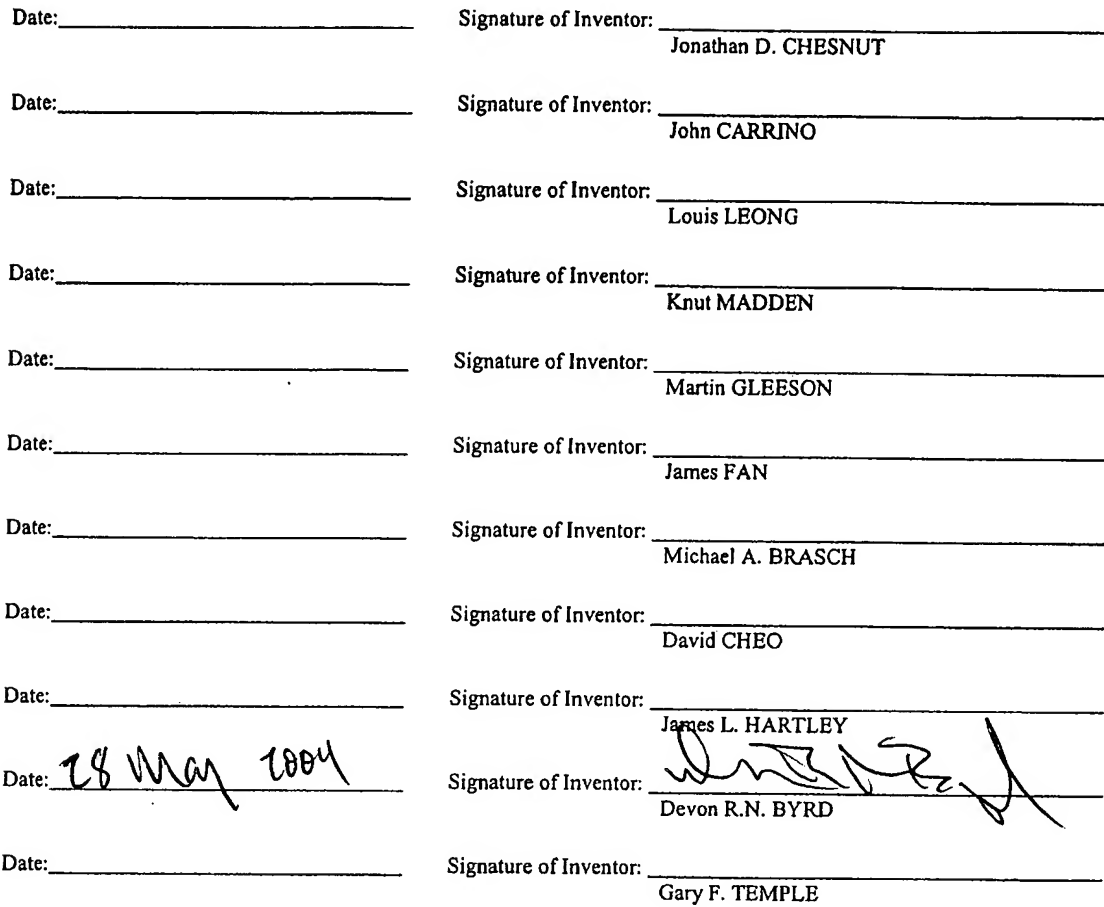 Date: Signature of Inventor:
Jonathan D. CHESNUT
Date: Signature of Inventor:
John CARRINO
Date: Signature of Inventor:
Louis LEONG
Date: Signature of Inventor:
Knut MADDEN
Date: Signature of Inventor:
Martin GLEESON
Date: Signature of Inventor:
James FAN
Date: Signature of Inventor:
Michael A. BRASCH
Date: Signature of Inventor:
David CHEO
Date: Signature of Inventor:
James L. HARTLEY
Date: 28 May 2004 Signature of Inventor:
Devon R.N. BYRD
Date: Signature of Inventor:
Gary F. TEMPLE